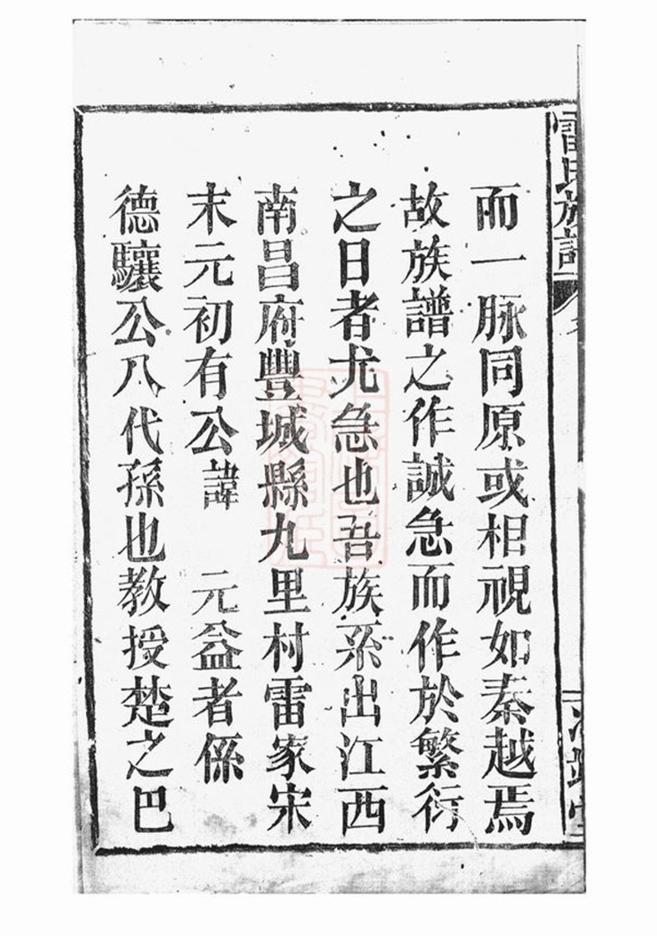 雷氏族譜
而一脉同原或相視如秦越焉
故族譜之作誠急而作於繁衍
之日者尤急也吾族系出江西
南昌府豐城縣九里村雷家宋
末元初有公諱　元益者係
德驤公八代孫也教授楚之巴